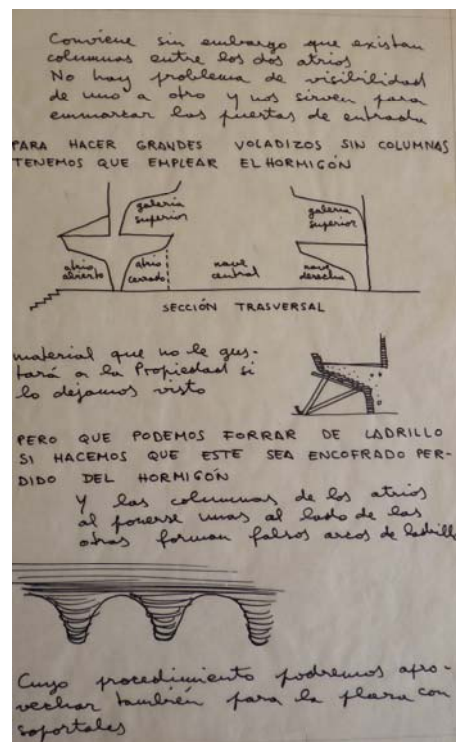 Conviene sin embargo que existan
columnas entre los dos atrios
No hay problema de visibilidad
de uno a otro y nos sirven para
enmarcar las puertas de entrada
PARA HACER GRANDES VOLADIZOS SIN COLUMNAS
TENEMOS QUE EMPLEAR EL HORMIGÓN
galeria
superior
galeria
superior
atrio
abierto
atrio
cerrado
nave
central
nave
derecha
SECCIÓN TRASVERSAL
material que no le gus-
tará a la Propiedad si
lo dejamos visto
PERO QUE PODEMOS FORRAR DE LADRILLO
SI HACEMOS QUE ESTE SEA ENCOFRADO PER-
DIDO DEL HORMIGÓN
Y las columnas de los atrios
al ponerse unas al lado de las
otras forman falsos arcos de ladrillo
Cuyo procedimiento podremos apro-
vechar también para la plaza con
soportales